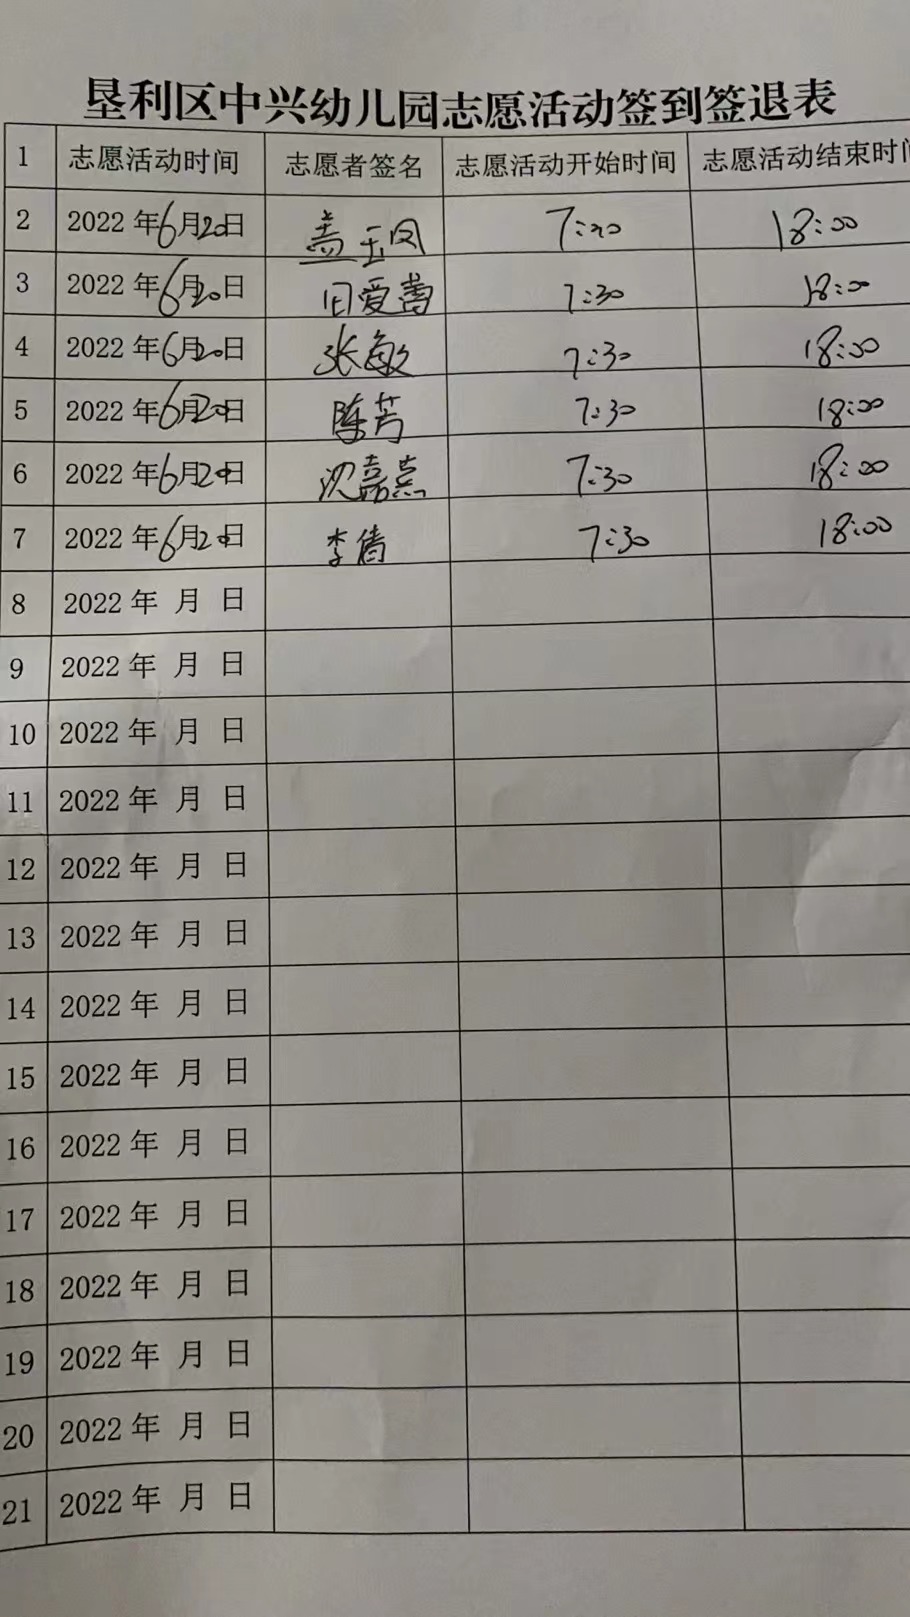 垦利区中兴幼儿园志愿活动签到签退表
1 志愿活动时间 志愿者签名 志愿活动开始时间 志愿活动结束时间
2 2022年6月20日 盖玉凤 7:30 18:00
3 2022年6月20日 7:30 18:00
4 2022年6月20日 张敏 7:30 18:00
5 2022年6月20日 陈芳 7:30 18:00
6 2022年6月20日 沈嘉熹 7:30 18:00
7 2022年6月20日 李倩 7:30 18:00
8 2022年 月 日
9 2022年 月 日
10 2022年 月 日
11 2022年 月 日
12 2022年 月 日
13 2022年 月 日
14 2022年 月 日
15 2022年 月 日
16 2022年 月 日
17 2022年 月 日
18 2022年 月 日
19 2022年 月 日
20 2022年 月 日
21 2022年 月 日